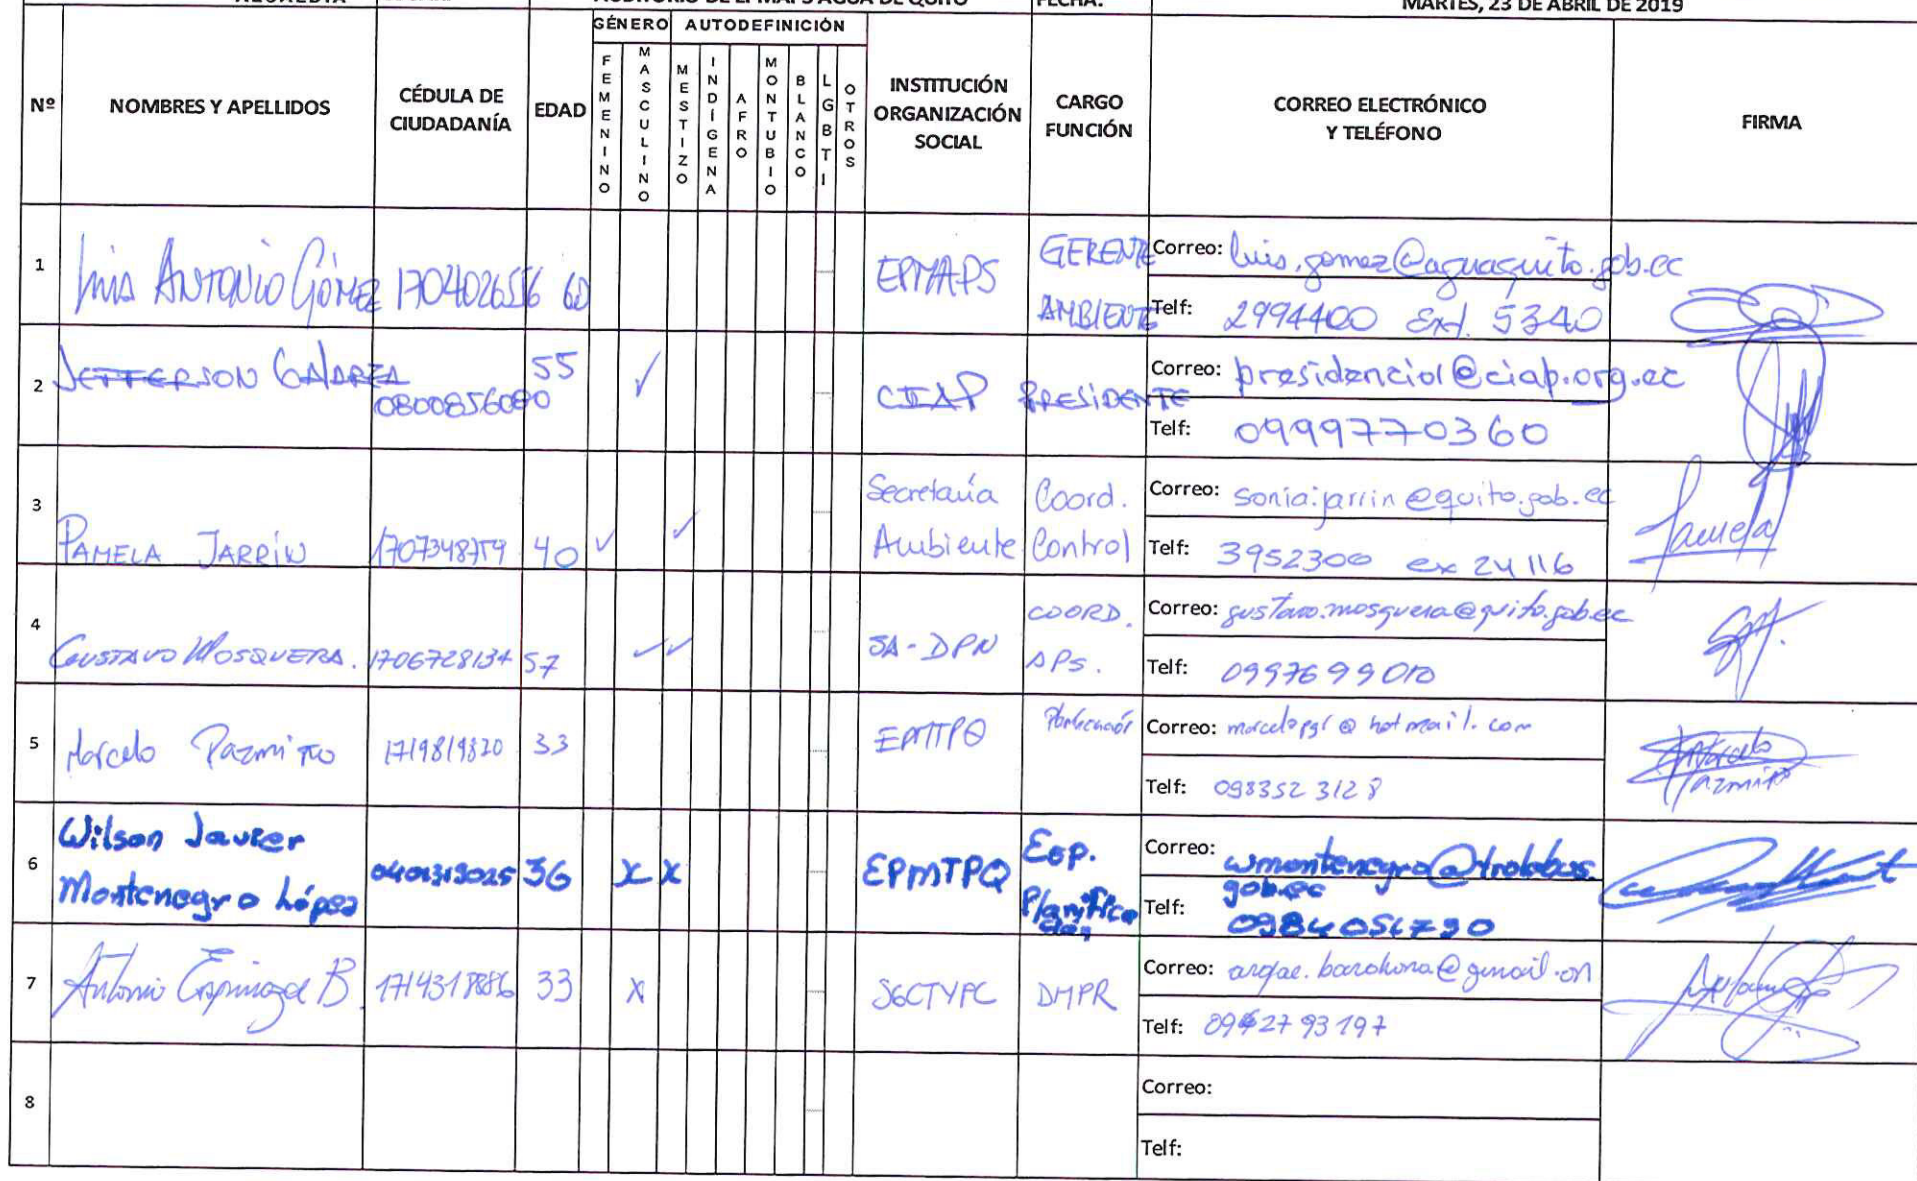 AUDITORIO DE EPMAPS AGUA DE QUITO FECHA: MARTES, 23 DE ABRIL DE 2019
GÉNERO AUTODEFINICIÓN
Nº NOMBRES Y APELLIDOS CÉDULA DE CIUDADANÍA EDAD FEMENINO MASCULINO MESTIZO INDÍGENA AFRO MONTUBIO BLANCO LGBTI OTROS INSTITUCIÓN ORGANIZACIÓN SOCIAL CARGO FUNCIÓN CORREO ELECTRÓNICO Y TELÉFONO FIRMA
1 Luis ANTONIO GÓMEZ 1704026556 60 EPMAPS GERENTE AMBIENTE Correo: luis.gomez@aguaquito.gob.ec
Telf: 2994400 Ext. 5340
2 JEFFERSON 0800856080 55 ✓ CIAP PRESIDENTE Correo: presidencia@ciap.org.ec
Telf: 0999770360
3 PAMELA JARRÍN 40 ✓ ✓ Secretaría Ambiente Coord. Control Correo: sonia.jarrin@quito.gob.ec
Telf: 3952300 ex 24116 Pamela
4 GUSTAVO MOSQUERA. 1706728134 57 ✓ ✓ SA-DPN COORD. APS. Correo: gustavo.mosquera@quito.gob.ec
Telf: 0997699010
5 Marcelo Pazmiño 1719819820 33 EPMTPQ Correo: marcelopgr@hotmail.com
Telf: 098352 3128 Marcelo Pazmiño
6 Wilson Javier Montenegro López 0401319025 36 X X EPMTPQ Esp. Planificación Correo: wmontenegro@trolebus.gob.ec
Telf: 0984054790
7 Antonio Espinoza B. 1714317886 33 X SGCTYPC DMPR Correo:
Telf:
8 Correo:
Telf: